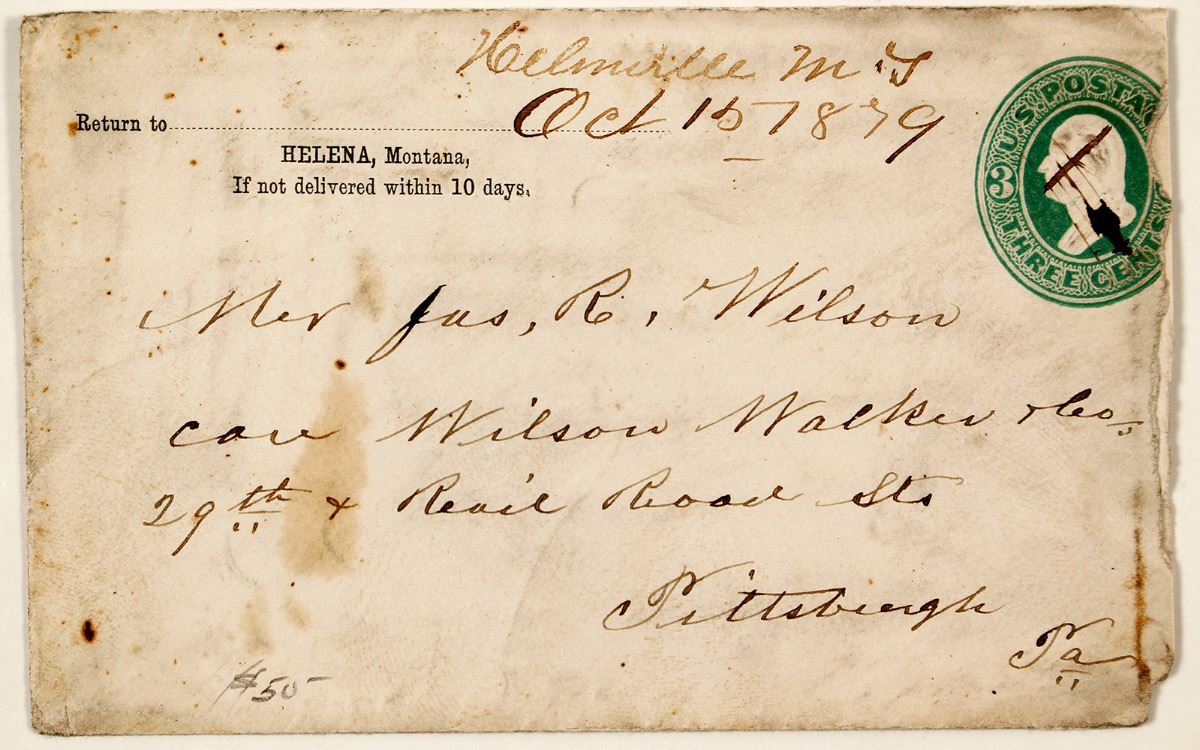 Helmville M.T
Oct 15 1879
Return to
HELENA, Montana,
If not delivered within 10 days.
U.S. POSTA
3
THREE CENTS
Mr Jas, R. Wilson
care Wilson Walker & Co.
29th & Rail Road Sts
Pittsburgh
Pa
$50-